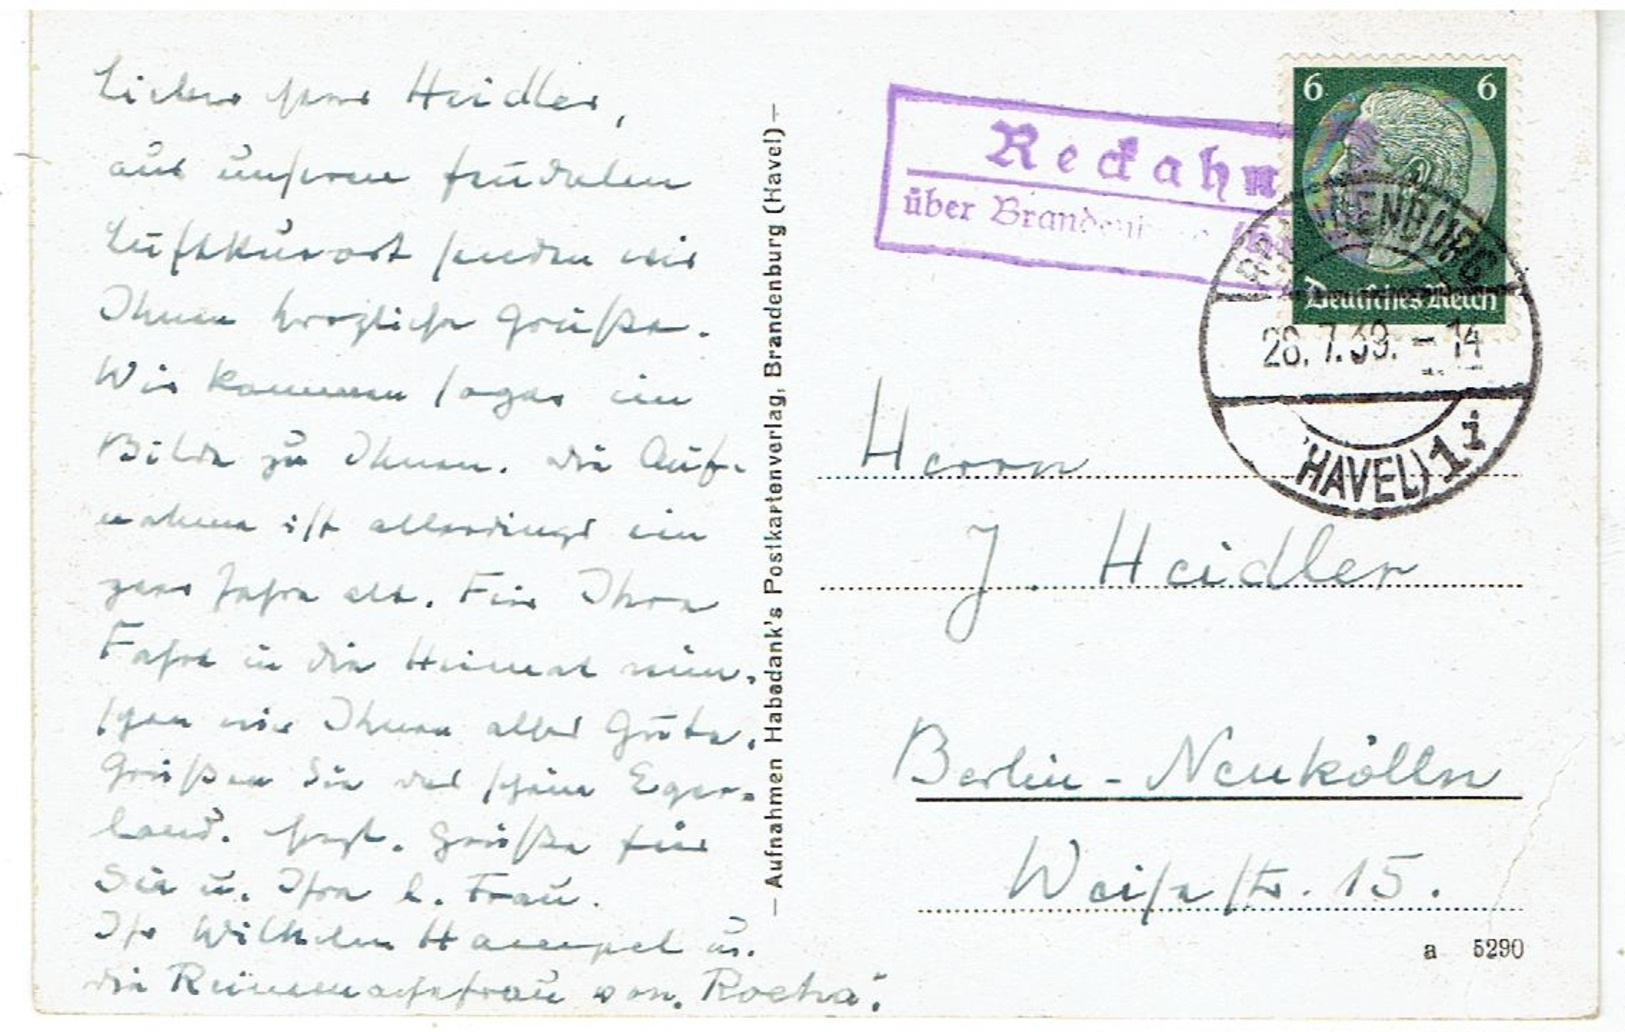 Lieber Herr Heidler,
aus unserem feudalen
Luftkurort senden wir
Ihnen herzliche Grüße.
Wir kommen sogar im
Bilde zu Ihnen. Die Auf-
nahme ist allerdings ein
paar Jahre alt. Für Ihre
Fahrt in die Heimat wün-
schen wir Ihnen alles Gute.
Grüßen Sie das schöne Eger-
land. Herzl. Grüße für
Sie u. Ihre l. Frau.
Ihr Wilhelm Haempel u.
die
– Aufnahmen Habedank's Postkartenverlag, Brandenburg (Havel) –
Reckahn
über Brandenburg
6 6
Deutsches Reich
BRANDENBURG
28.7.39. – 14
(HAVEL) 1i
Herrn
J. Heidler
Berlin - Neukölln
Weisestr. 15.
a 5290